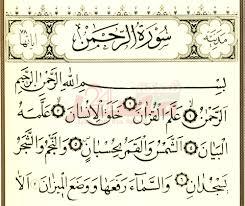 سُورَةُ الرَّحْمٰن
بِسْمِ اللهِ الرَّحْمٰنِ الرَّحِيمِ
اَلرَّحْمٰنُ ۝ عَلَّمَ الْقُرْاٰنَ ۝ خَلَقَ الْاِنْسَانَ ۝ عَلَّمَهُ
الْبَيَانَ ۝ اَلشَّمْسُ وَالْقَمَرُ بِحُسْبَانٍ ۝ وَالنَّجْمُ وَالشَّجَرُ
يَسْجُدَانِ ۝ وَالسَّمَاءَ رَفَعَهَا وَوَضَعَ الْمِيزَانَ ۝ اَلَّا